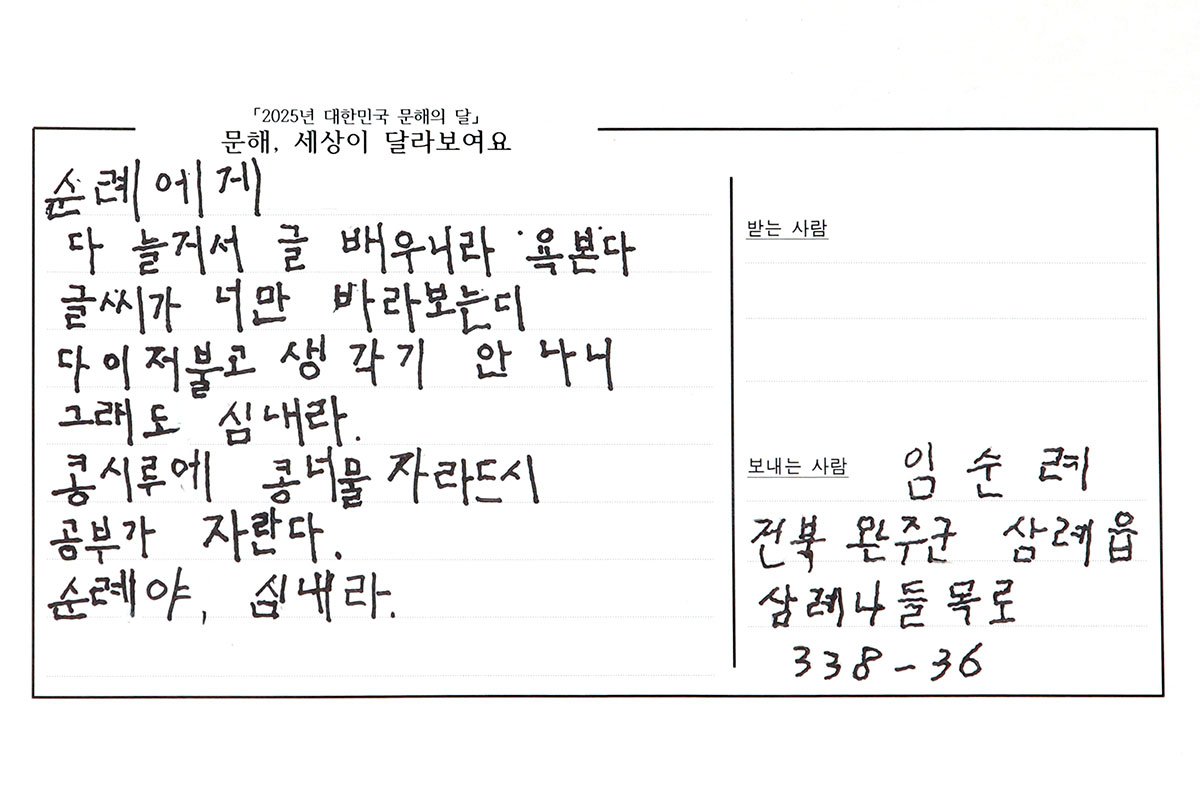 「2025년 대한민국 문해의 달」
문해, 세상이 달라보여요
순례에게
다 늘거서 글 배우니라 욕본다
글씨가 너만 바라보는디
다 이저불고 생각기 안 나니
그래도 심내라.
콩시루에 콩너물 자라드시
공부가 자란다.
순례야, 심내라.
받는 사람
보내는 사람 임순례
전북 완주군 삼례읍
삼례나들목로
338-36